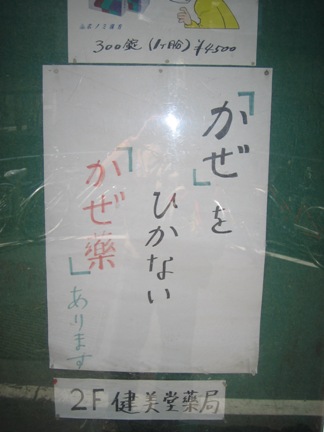 300錠(1ヶ月分)¥4500
「かぜ」を
ひかない
「かぜ藥」あります
2F 健美堂藥局